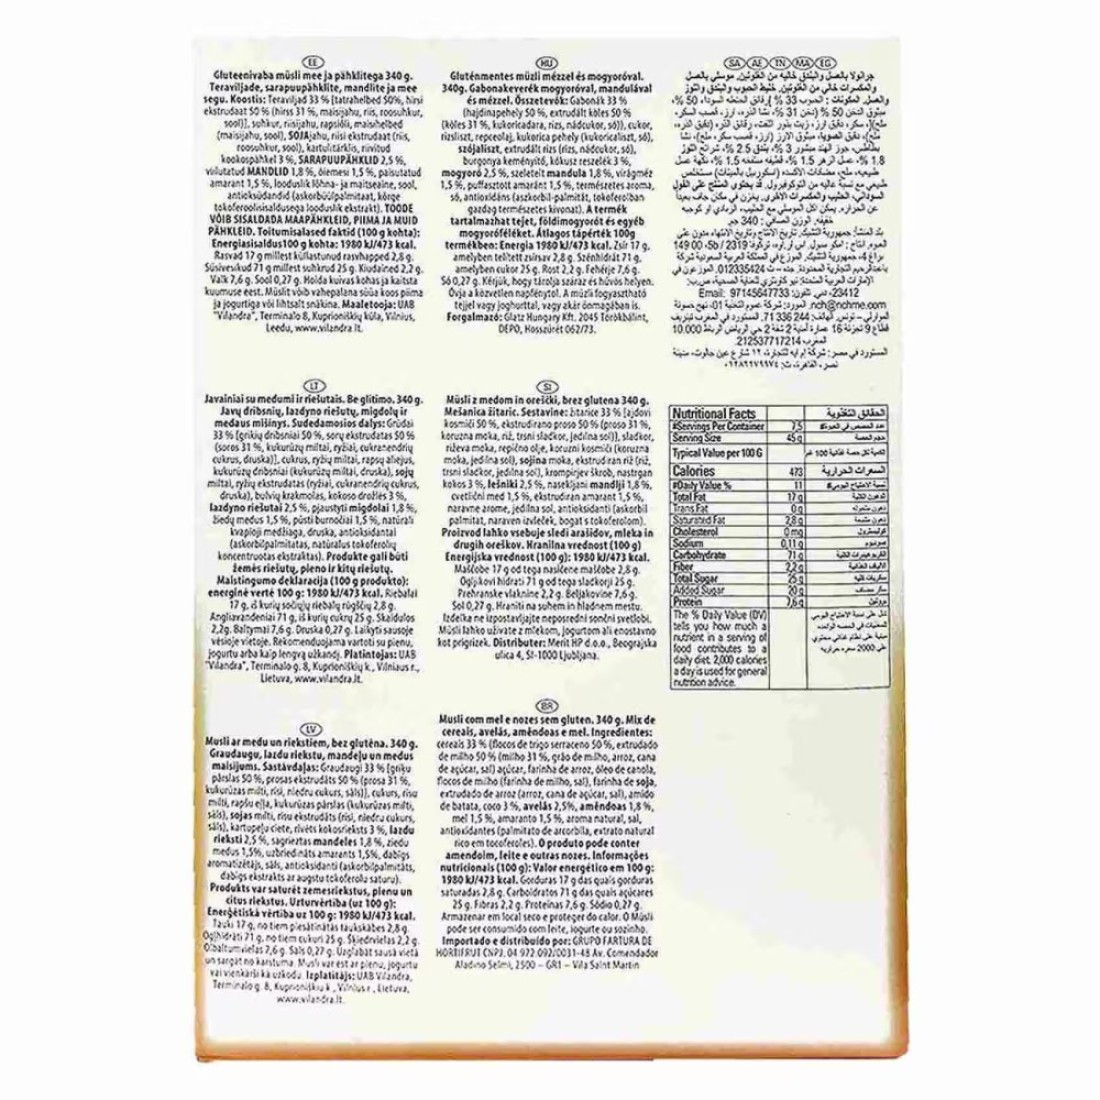 EE
Gluteenivaba müsli mee ja pähklitega 340 g.
Teraviljade, sarapuupähklite, mandlite ja mee
segu. Koostis: Teraviljad 33 % [tatrahelbed 50%, hirsi
ekstrudaat 50 % (hirss 31 %, maisijahu, riis, roosuhkur,
sool)], suhkur, riisijahu, rapsiõli, maisihelbed
(maisijahu, sool), SOJAjahu, riisi ekstrudaat (riis,
roosuhkur, sool), kartulitärklis, riivitud
kookospähkel 3 %, SARAPUUPÄHKLID 2,5 %,
viilutatud MANDLID 1,8 %, õiemesi 1,5 %, paisutatud
amarant 1,5 %, looduslik lõhna- ja maitseaine, sool,
antioksüdandid (askorbüülpalmitaat, kõrge
tokoferoolisisaldusega looduslik ekstrakt). TOODE
VÕIB SISALDADA MAAPÄHKLEID, PIIMA JA MUID
PÄHKLEID. Toitumisalased faktid (100 g kohta):
Energiasisaldus 100 g kohta: 1980 kJ/473 kcal.
Rasvad 17 g millest küllastunud rasvhapped 2,8 g.
Süsivesikud 71 g millest suhkrud 25 g. Kiudained 2,2 g.
Valk 7,6 g. Sool 0,27 g. Hoida kuivas kohas ja kaitsta
kuumuse eest. Müslit võib vahepalana süüa koos piima
ja jogurtiga või lihtsalt snäkina. Maaletooja: UAB
"Vilandra", Terminalo 8, Kuprioniškių küla, Vilnius,
Leedu, www.vilandra.lt.
HU
Gluténmentes müzli mézzel és mogyoróval.
340g. Gabonakeverék mogyoróval, mandulával
és mézzel. Összetevők: Gabonák 33 %
(hajdinapehely 50 %, extrudált köles 50 %
(köles 31 %, kukoricadara, rizs, nádcukor, só)), cukor,
rizsliszt, repceolaj, kukorica pehely (kukoricaliszt, só),
szójaliszt, extrudált rizs (rizs, nádcukor, só),
burgonya keményítő, kókusz reszelék 3 %,
mogyoró 2,5 %, szeletelt mandula 1,8 %, virágméz
1,5 %, puffasztott amaránt 1,5 %, természetes aroma,
só, antioxidáns (aszkorbil-palmitát, tokoferolban
gazdag természetes kivonat). A termék
tartalmazhat tejet, földimogyorót és egyéb
mogyoróféléket. Átlagos tápérték 100g
termékben: Energia 1980 kJ/473 kcal. Zsír 17 g,
amelyben telített zsírsav 2,8 g. Szénhidrát 71 g,
amelyben cukor 25 g. Rost 2,2 g. Fehérje 7,6 g.
Só 0,27 g. Kérjük, hogy tárolja száraz és hűvös helyen.
Óvja a közvetlen napfénytől. A müzli fogyasztható
tejjel vagy joghurttal, vagy akár önmagában is.
Forgalmazó: Glatz Hungary Kft. 2045 Törökbálint,
DEPO, Hosszúrét 062/73.
SA AE TN MA EG
جرانولا بالعسل والبندق خالية من الغلوتين. موسلي بالعسل
والمكسرات خالي من الغلوتين. خليط الحبوب والبندق واللوز
والعسل. المكونات : الحبوب 33 %
Email:
nch@nchme.com
LT
Javainiai su medumi ir riešutais. Be glitimo. 340 g.
Javų dribsnių, lazdyno riešutų, migdolų ir
medaus mišinys. Sudedamosios dalys: Grūdai
33 % [grikių dribsniai 50 %, sorų ekstrudatas 50 %
(soros 31 %, kukurūzų miltai, ryžiai, cukranendrių
cukrus, druska)], cukrus, ryžių miltai, rapsų aliejus,
kukurūzų dribsniai (kukurūzų miltai, druska), sojų
miltai, ryžių ekstrudatas (ryžiai, cukranendrių cukrus,
druska), bulvių krakmolas, kokoso drožlės 3 %,
lazdyno riešutai 2,5 %, pjaustyti migdolai 1,8 %,
žiedų medus 1,5 %, pūsti burnočiai 1,5 %, natūrali
kvapioji medžiaga, druska, antioksidantai
(askorbilpalmitatas, natūralus tokoferolių
koncentruotas ekstraktas). Produkte gali būti
žemės riešutų, pieno ir kitų riešutų.
Maistingumo deklaracija (100 g produkto):
energinė vertė 100 g: 1980 kJ/473 kcal. Riebalai
17 g, iš kurių sočiųjų riebalų rūgščių 2,8 g.
Angliavandeniai 71 g, iš kurių cukrų 25 g. Skaidulos
2,2g. Baltymai 7,6 g. Druska 0,27 g. Laikyti sausoje
vėsioje vietoje. Rekomenduojama vartoti su pienu,
jogurtu arba kaip lengvą užkandį. Platintojas: UAB
"Vilandra", Terminalo g. 8, Kuprioniškių k., Vilniaus r.,
Lietuva, www.vilandra.lt.
SI
Müsli z medom in oreščki, brez glutena 340 g.
Mešanica žitaric. Sestavine: žitarice 33 % [ajdovi
kosmiči 50 %, ekstrudirano proso 50 % (proso 31 %,
koruzna moka, riž, trsni sladkor, jedilna sol)], sladkor,
riževa moka, repično olje, koruzni kosmiči (koruzna
moka, jedilna sol), sojina moka, ekstrudiran riž (riž,
trsni sladkor, jedilna sol), krompirjev škrob, nastrgan
kokos 3 %, lešniki 2,5 %, nasekljani mandlji 1,8 %,
cvetlični med 1,5 %, ekstrudiran amarant 1,5 %,
naravne arome, jedilna sol, antioksidanti (askorbil
palmitat, naraven izvleček, bogat s tokoferolom).
Proizvod lahko vsebuje sledi arašidov, mleka in
drugih oreškov. Hranilna vrednost (100 g)
Energijska vrednost (100 g): 1980 kJ/473 kcal.
Maščobe 17 g od tega nasičene maščobe 2,8 g.
Ogljikovi hidrati 71 g od tega sladkorji 25 g.
Prehranske vlaknine 2,2 g. Beljakovine 7,6 g.
Sol 0,27 g. Hraniti na suhem in hladnem mestu.
Izdelka ne izpostavljajte neposredni sončni svetlobi.
Müsli lahko uživate z mlekom, jogurtom ali enostavno
kot prigrizek. Distributer: Merit HP d.o.o., Beograjska
ulica 4, SI-1000 Ljubljana.
Nutritional Facts الحقائق التغذوية
#Servings Per Container 7,5
Serving Size 45 g حجم الحصة
Typical Value per 100 G
Calories 473 السعرات الحرارية
#Daily Value % 11
Total Fat 17 g
Trans Fat 0 g
Saturated Fat 2,8 g
Cholesterol 0 mg
Sodium 0,11 g
Carbohydrate 71 g
Fiber 2,2 g
Total Sugar 25 g
Added Sugar 20 g
Protein 7,6 g
The % Daily Value (DV)
tells you how much a
nutrient in a serving of
food contributes to a
daily diet. 2,000 calories
a day is used for general
nutrition advice.
LV
Musli ar medu un riekstiem, bez glutēna. 340 g.
Graudaugu, lazdu riekstu, mandeļu un medus
maisījums. Sastāvdaļas: Graudaugi 33 % [griķu
pārslas 50 %, prosas ekstrudāts 50 % (prosa 31 %,
kukurūzas milti, rīsi, niedru cukurs, sāls)], cukurs, rīsu
milti, rapšu eļļa, kukurūzas pārslas (kukurūzas milti,
sāls), sojas milti, rīsu ekstrudāts (rīsi, niedru cukurs,
sāls), kartupeļu ciete, rīvēts kokosrieksts 3 %, lazdu
rieksti 2,5 %, sagrieztas mandeles 1,8 %, ziedu
medus 1,5%, uzbriedināts amarants 1,5%, dabīgs
aromatizētājs, sāls, antioksidanti (askorbilpalmitāts,
dabīgs ekstrakts ar augstu tokoferolu saturu).
Produkts var saturēt zemesriekstus, pienu un
citus riekstus. Uzturvērtība (uz 100 g):
Enerģētiskā vērtība uz 100 g: 1980 kJ/473 kcal.
Tauki 17 g, no tiem piesātinātās taukskābes 2,8 g.
Ogļhidrāti 71 g, no tiem cukuri 25 g. Šķiedrvielas 2,2 g.
Olbaltumvielas 7,6 g. Sāls 0,27 g. Uzglabāt sausā vietā
un sargāt no karstuma. Musli var ēst ar pienu, jogurtu
vai vienkārši kā uzkodu. Izplatītājs: UAB Vilandra,
Terminalo g. 8, Kuprioniškių k., Vilnius r., Lietuva,
www.vilandra.lt.
BR
Musli com mel e nozes sem gluten. 340 g. Mix de
cereais, avelãs, amêndoas e mel. Ingredientes:
cereais 33 % (flocos de trigo serraceno 50 %, extrudado
de milho 50 % (milho 31 %, grão de milho, arroz, cana
de açúcar, sal) açúcar, farinha de arroz, óleo de canola,
flocos de milho (farinha de milho, sal), farinha de soja,
extrudado de arroz (arroz, cana de açúcar, sal), amido
de batata, coco 3 %, avelãs 2,5%, amêndoas 1,8 %,
mel 1,5 %, amaranto 1,5 %, aroma natural, sal,
antioxidantes (palmitato de arcorbila, extrato natural
rico em tocoferoles). O produto pode conter
amendoim, leite e outras nozes. Informações
nutricionais (100 g): Valor energético em 100 g:
1980 kJ/473 kcal. Gorduras 17 g das quais gorduras
saturadas 2,8 g. Carboidratos 71 g das quais açúcares
25 g. Fibras 2,2 g. Proteínas 7,6 g. Sódio 0,27 g.
Armazenar em local seco e proteger do calor. O Müsli
pode ser consumido com leite, iogurte ou sozinho.
Importado e distribuído por: GRUPO FARTURA DE
HORTIFRUT CNPJ. 04 972.092/0031-48 Av. Comendador
Aladino Selmi, 2500 – GR1 – Vila Saint Martin